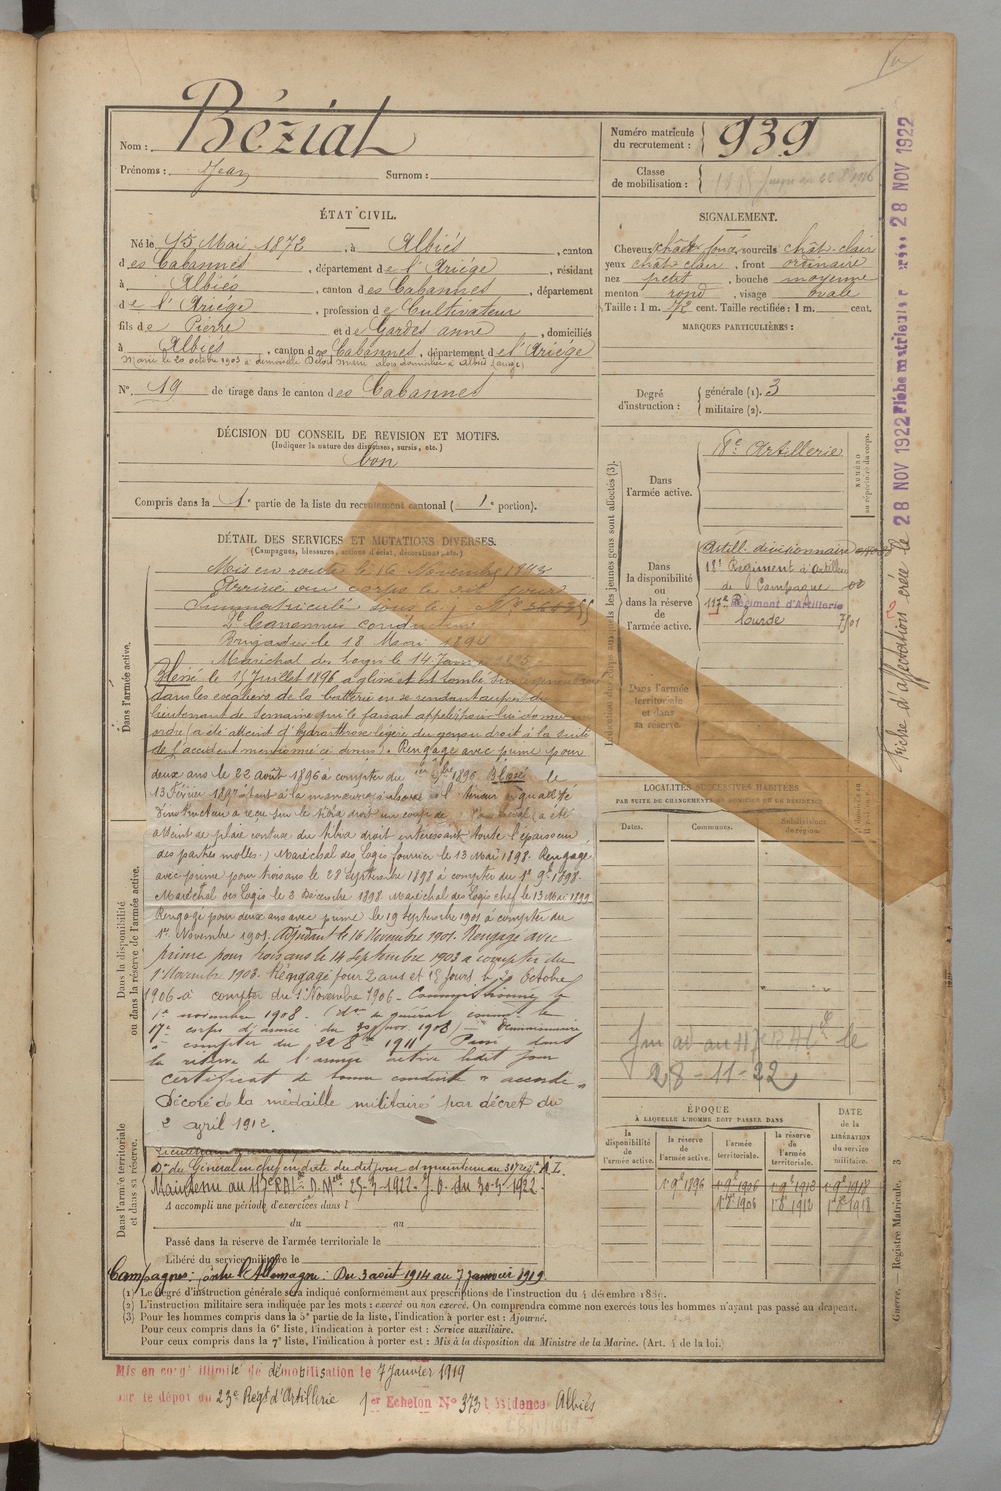 Nom : Béziat
Prénoms : Jean Surnom :
Numéro matricule du recrutement : 939
Classe de mobilisation :
ÉTAT CIVIL.
Né le 15 Mai 1872, à Albiés, canton
des Cabannes, département de l'Ariége, résidant
à Albiés, canton des Cabannes, département
de l'Ariége, profession de Cultivateur
fils de Pierre et de Gardes anne, domiciliés
à Albiés, canton des Cabannes, département de l'Ariége
Marié le 20 octobre 1903 à demoiselle
N° 19 de tirage dans le canton des Cabannes
SIGNALEMENT.
Cheveux chât. foncé sourcils chât-clair
yeux chât clair, front ordinaire
nez petit, bouche moyenne
menton rond, visage ovale
Taille : 1 m. 72 cent. Taille rectifiée : 1 m. cent.
MARQUES PARTICULIÈRES :
Degré d'instruction : générale (1). 3
militaire (2).
DÉCISION DU CONSEIL DE REVISION ET MOTIFS.
(Indiquer la nature des dispenses, sursis, etc.)
bon
Compris dans la 1e partie de la liste du recrutement cantonal (1e portion).
DÉTAIL DES SERVICES ET MUTATIONS DIVERSES.
(Campagnes, blessures, actions d'éclat, décorations, etc.)
Dans l'armée active.
Mis en route le 16 Novembre 1893
Arrivé au corps le dit jour
Immatriculé sous le
2e Canonnier conducteur
Brigadier le 18 Mai 1894
Maréchal des logis le 14
Blessé le 15 Juillet 1896 a glissé et est tombé sur le genou
dans les escaliers de la batterie en se rendant auprès du
lieutenant de semaine qui le faisait appeler pour lui donner un
ordre (a été atteint d'hydarthrose légère du genou droit à la suite
de l'accident mentionné ci-dessus). Rengagé avec prime pour
deux ans le 22 août 1896 à compter du 1er 9bre 1896. Blessé le
13 Février 1897 étant à la manœuvre à cheval
d'instructeur a reçu sur le tibia droit un coup de (a été
atteint de plaie contuse du tibia droit intéressant toute l'épaisseur
des parties molles.) Maréchal des Logis fourrier le 13 Mai 1898. Rengagé
avec prime pour trois ans le 28 Septembre 1898 à compter du 1er 9bre 1898
Maréchal des Logis le 3 Décembre 1898 Maréchal des Logis chef le 13 Mai 1899
Rengagé pour deux ans avec prime le 19 septembre 1901 à compter du
1er Novembre 1901. Adjudant le 16 Novembre 1901. Rengagé avec
prime pour trois ans le 14 Septembre 1903 à compter du
1er Novembre 1903. Rengagé pour 2 ans et 15 jours le 20 Octobre
1906 à compter du 1er Novembre 1906 - Commissionné le
1er novembre 1908. (Don du général comm't le
17e corps d'armée du 1908) - Démissionnaire
à compter du 22 8bre 1911 Passé dans
la réserve de l'armée active ledit jour
certificat de bonne conduite "accordé"
Décoré de la médaille militaire par décret du
2 avril 1912.
Dans la disponibilité ou dans la réserve de l'armée active.
Dans l'armée territoriale et dans sa réserve.
Don du Général en chef en date du dit jour et maintenu au A.I.
Maintenu au 117e RAL D. Mlle 25-5-1922. J.O. du 30-5-1922.
A accompli une période d'exercices dans l
du au
Passé dans la réserve de l'armée territoriale le
Libéré du service militaire le
Campagnes : contre l'Allemagne : Du 3 août 1914 au 7 janvier 1919.
Indication des corps auxquels les jeunes gens sont affectés (3).
Dans l'armée active. 18e Artillerie
NUMÉRO au répertoire du corps.
Dans la disponibilité ou dans la réserve de l'armée active.
Artill. divisionnaire
18e Régiment d'Artillerie
de Campagne
117e Régiment d'Artillerie
lourde
Dans l'armée territoriale et dans sa réserve.
LOCALITÉS SUCCESSIVES HABITÉES
PAR SUITE DE CHANGEMENTS DE DOMICILE OU DE RÉSIDENCE
Dates. Communes. Subdivisions de région.
au 117e RAL le
28-11-22
ÉPOQUE
À LAQUELLE L'HOMME DOIT PASSER DANS
la disponibilité de l'armée active. la réserve de l'armée active. l'armée territoriale. la réserve de l'armée territoriale.
DATE de la LIBÉRATION du service militaire.
1er 9bre 1896 1er 9bre 1906 1er 9bre 1912 1er 9bre 1918
1er 8bre 1906 1er 8bre 1912 1er 8bre 1918
(1) Le degré d'instruction générale sera indiqué conformément aux prescriptions de l'instruction du 4 décembre 1889.
(2) L'instruction militaire sera indiquée par les mots : exercé ou non exercé. On comprendra comme non exercés tous les hommes n'ayant pas passé au drapeau.
(3) Pour les hommes compris dans la 5e partie de la liste, l'indication à porter est : Ajourné.
Pour ceux compris dans la 6e liste, l'indication à porter est : Service auxiliaire.
Pour ceux compris dans la 7e liste, l'indication à porter est : Mis à la disposition du Ministre de la Marine. (Art. 4 de la loi.)
Mis en congé illimité de démobilisation le 7 Janvier 1919
sur le dépôt du 23e Regt d'Artillerie 1er Echelon N° 373 résidence Albiés
Fiche d'affectation créée le 28 NOV 1922
Fiche matricule créée 28 NOV 1922
Guerre. Registre Matricule. 3